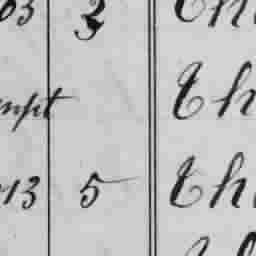 03 3 Th
mpt Th
13 5 Th